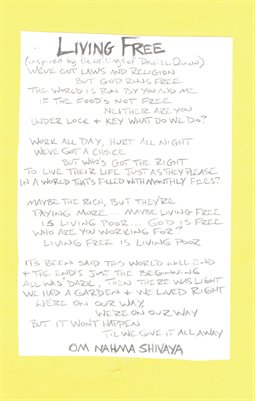 LIVING FREE
(inspired by the writings of Daniel Quinn)
WE'VE GOT LAWS AND RELIGION
BUT GOD RUNS FREE
THE WORLD IS RUN BY YOU AND ME
IF THE FOOD'S NOT FREE
NEITHER ARE YOU
UNDER LOCK + KEY WHAT DO WE DO?
WORK ALL DAY, HURT ALL NIGHT
WE'VE GOT A CHOICE
BUT WHO'S GOT THE RIGHT
TO LIVE THEIR LIFE JUST AS THEY PLEASE
IN A WORLD THAT'S FILLED WITH MONTHLY FEES?
MAYBE THE RICH, BUT THEY'RE
PAYING MORE... MAYBE LIVING FREE
IS LIVING POOR... GOD IS FREE
WHO ARE YOU WORKING FOR?
LIVING FREE IS LIVING POOR
ITS BEEN SAID THIS WORLD WILL END
+ THE END'S JUST THE BEGINNING
ALL WAS DARK, THEN THERE WAS LIGHT
WE HAD A GARDEN + WE LIVED RIGHT
WE'RE ON OUR WAY,
WE'RE ON OUR WAY
BUT IT WON'T HAPPEN
TIL WE GIVE IT ALL AWAY
OM NAHMA SHIVAYA